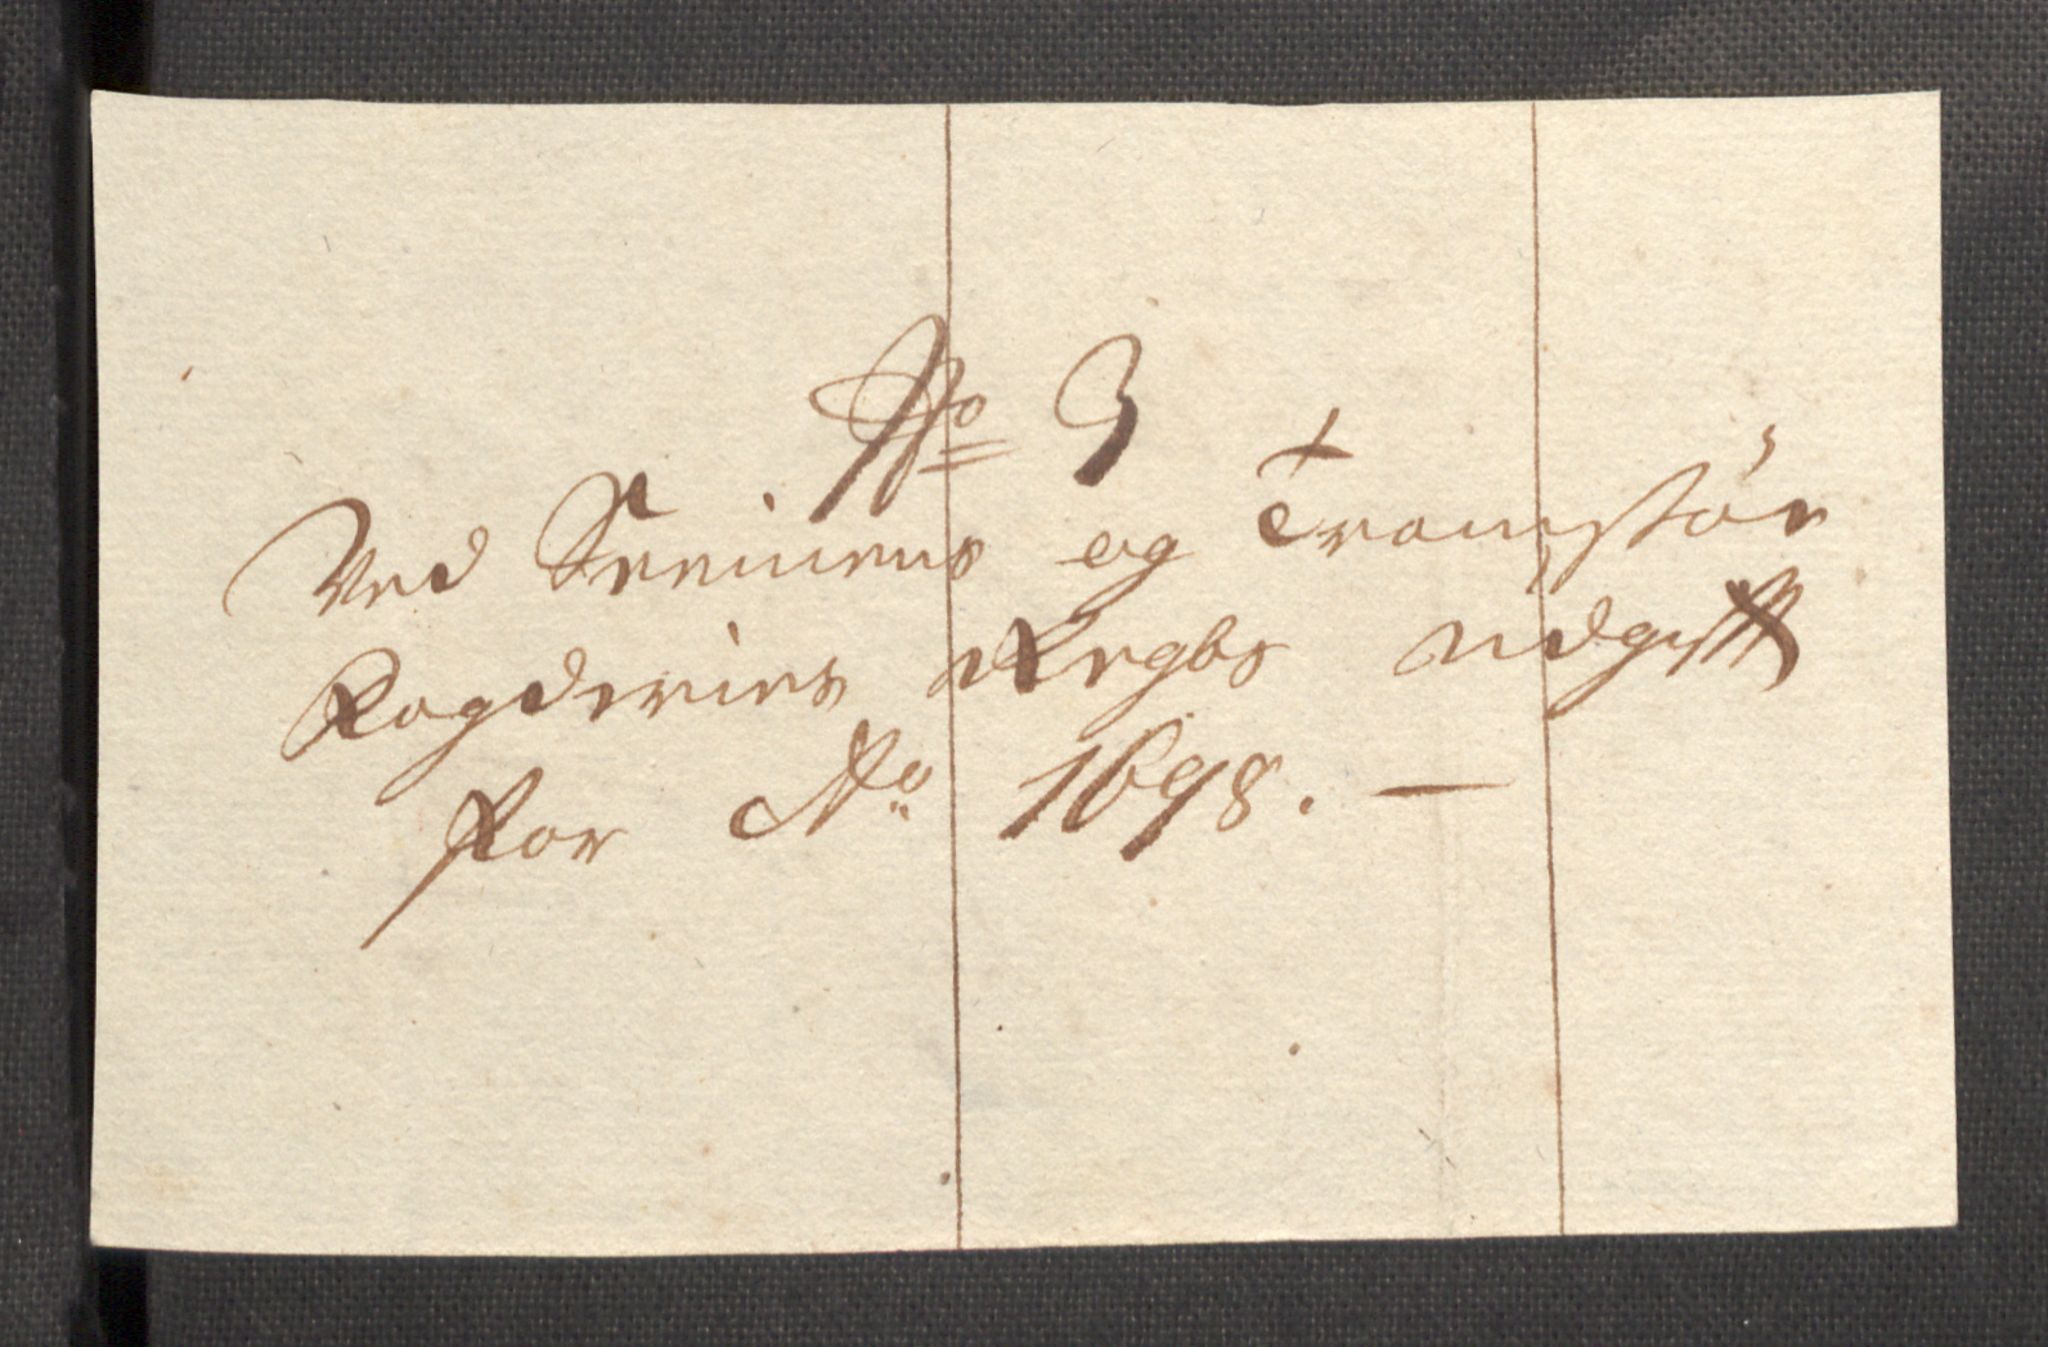 No 3
Ved Senniens og Tromsøes
Fogderies Regbs udgifft
for Ao 1698. —